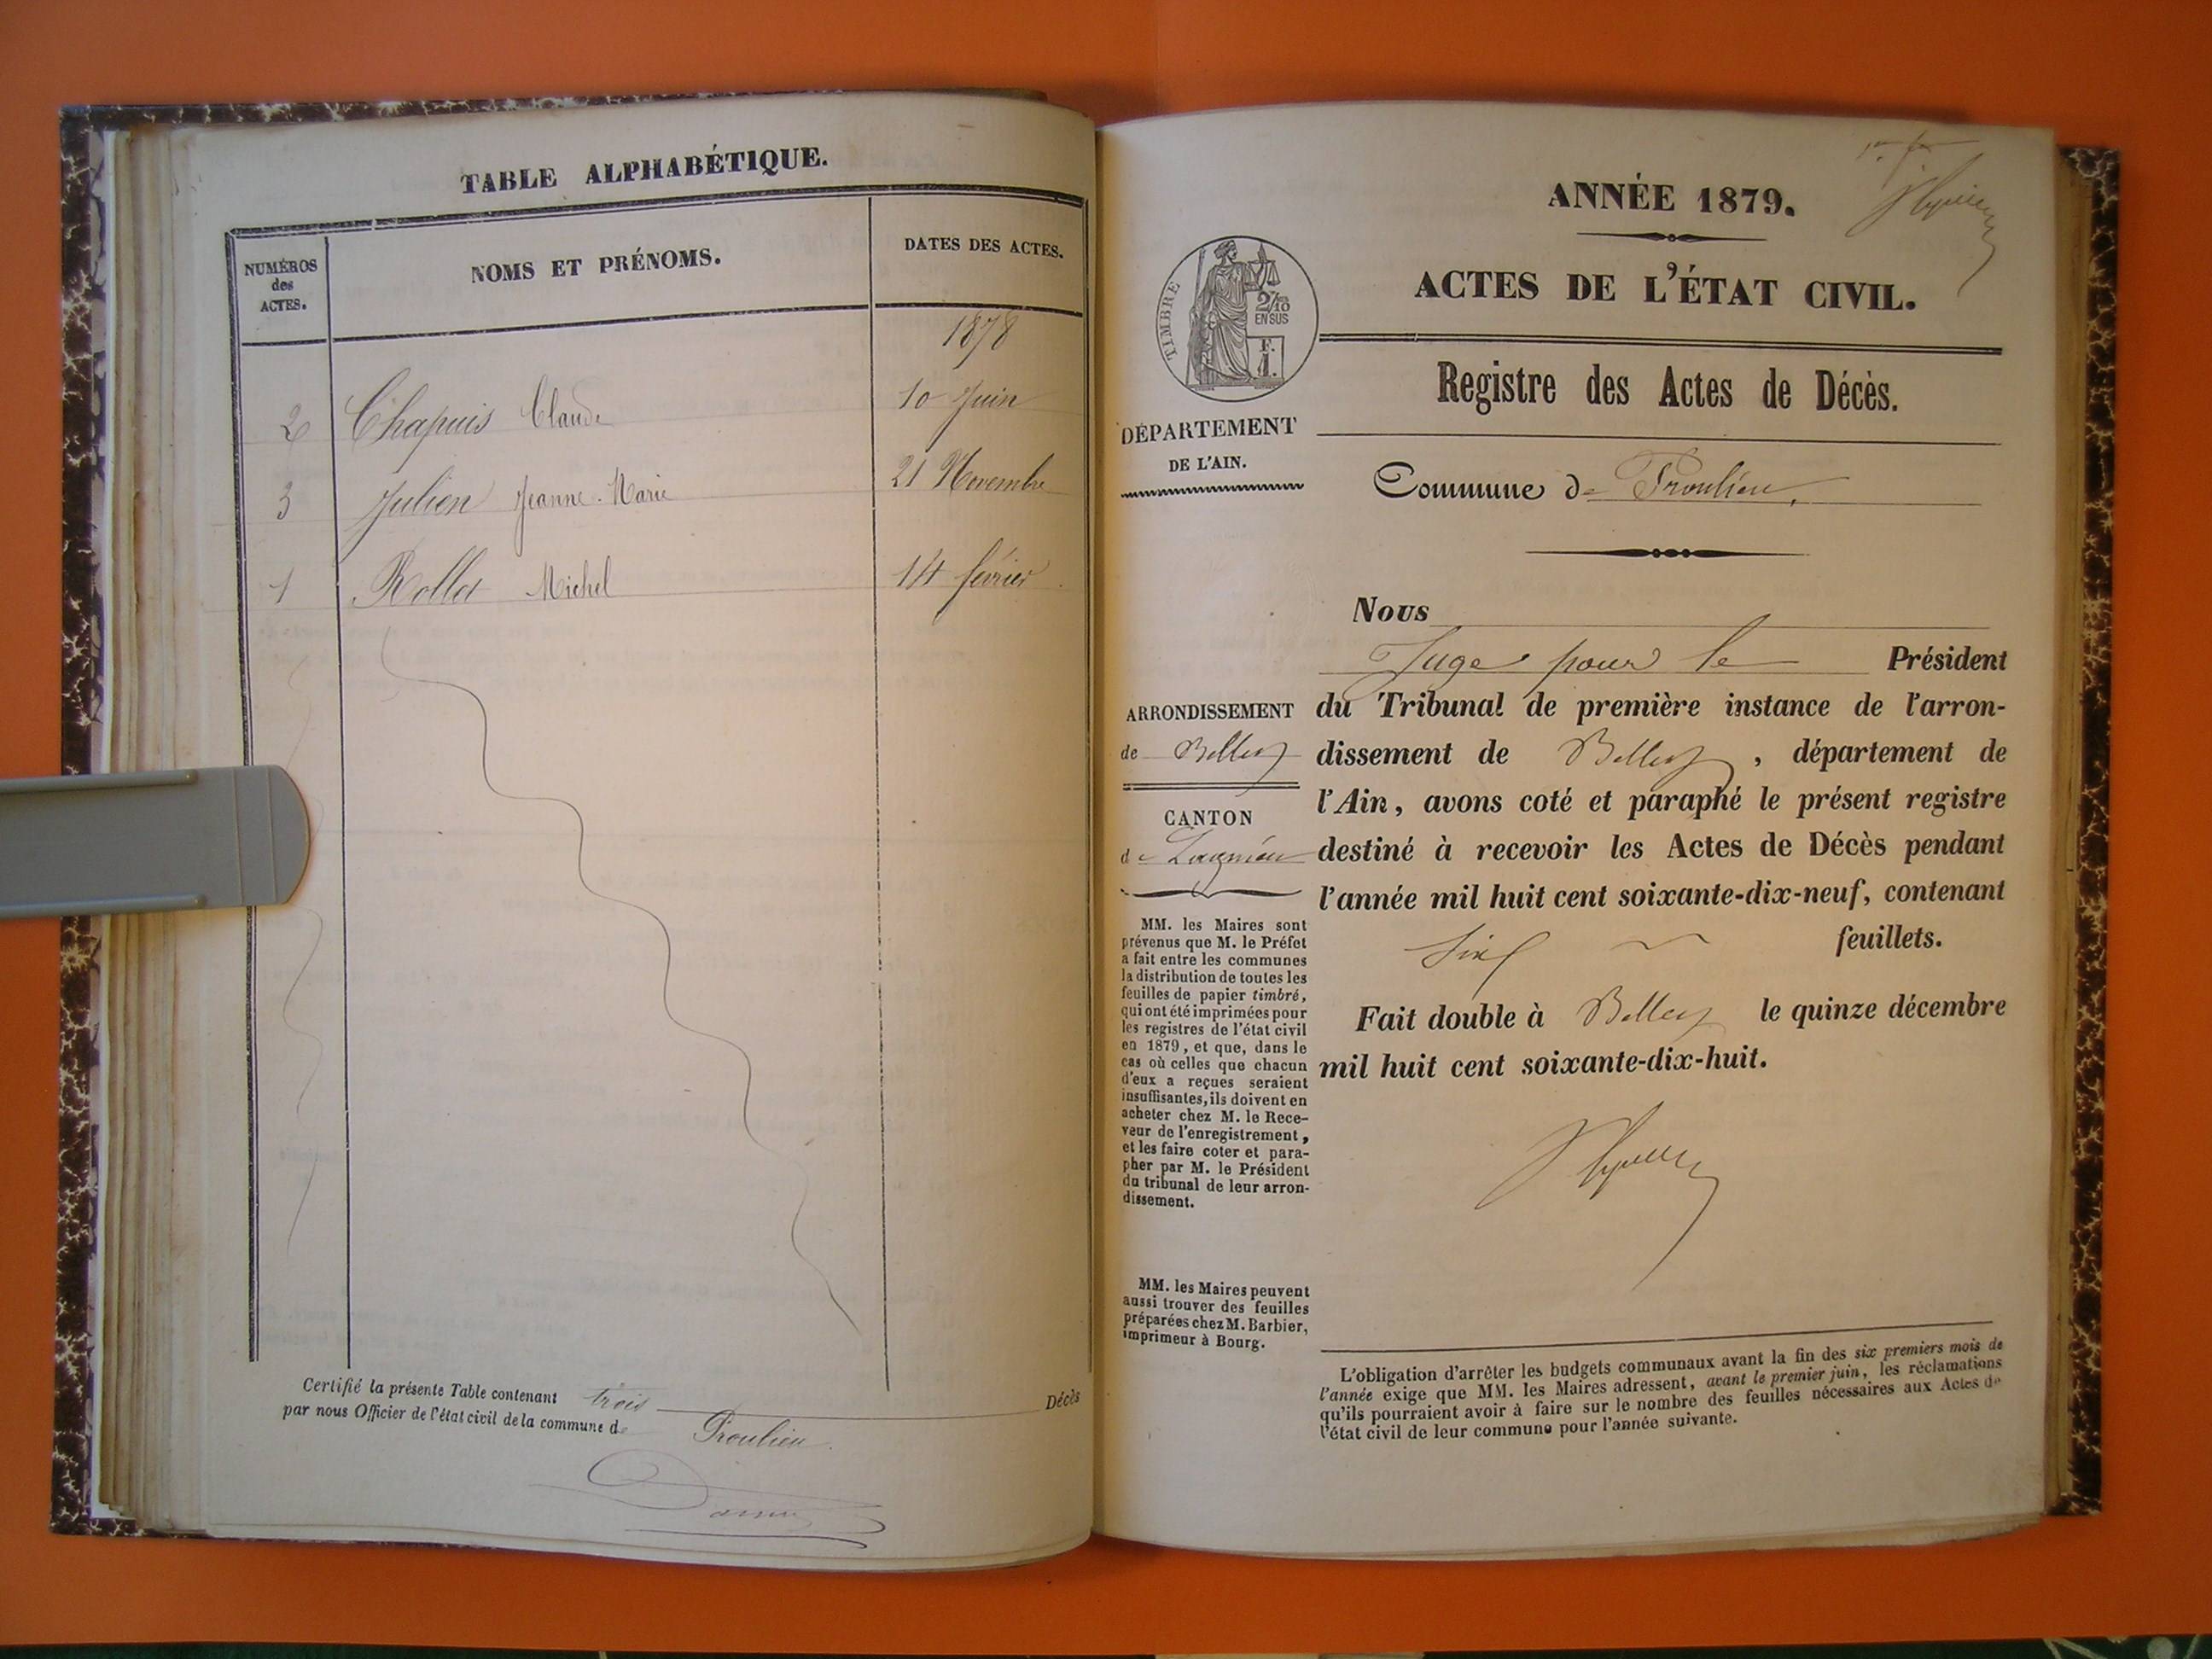 TABLE ALPHABÉTIQUE.
NUMÉROS
des
ACTES.
NOMS ET PRÉNOMS.
DATES DES ACTES.
1878
2 Chapuis Claude 10 Juin
3 Julien Jeanne-Marie 21 Novembre
1 Rollet Michel 14 février
Certifié la présente Table contenant trois Décès
par nous Officier de l'état civil de la commune de Proulieu.
ANNÉE 1879.
ACTES DE L'ÉTAT CIVIL.
TIMBRE
2/10
EN SUS
F.
1.
Registre des Actes de Décès.
DÉPARTEMENT
DE L'AIN.
Commune de Proulieu.
Nous
Juge pour le Président
du Tribunal de première instance de l'arron-
dissement de Belley, département de
l'Ain, avons coté et paraphé le présent registre
destiné à recevoir les Actes de Décès pendant
l'année mil huit cent soixante-dix-neuf, contenant
six feuillets.
Fait double à Belley le quinze décembre
mil huit cent soixante-dix-huit.
ARRONDISSEMENT
de Belley
CANTON
de Lagnieu
MM. les Maires sont
prévenus que M. le Préfet
a fait entre les communes
la distribution de toutes les
feuilles de papier timbré,
qui ont été imprimées pour
les registres de l'état civil
en 1879, et que, dans le
cas où celles que chacun
d'eux a reçues seraient
insuffisantes, ils doivent en
acheter chez M. le Rece-
veur de l'enregistrement,
et les faire coter et para-
pher par M. le Président
du tribunal de leur arron-
dissement.
MM. les Maires peuvent
aussi trouver des feuilles
préparées chez M. Barbier,
imprimeur à Bourg.
L'obligation d'arrêter les budgets communaux avant la fin des six premiers mois de
l'année exige que MM. les Maires adressent, avant le premier juin, les réclamations
qu'ils pourraient avoir à faire sur le nombre des feuilles nécessaires aux Actes de
l'état civil de leur commune pour l'année suivante.